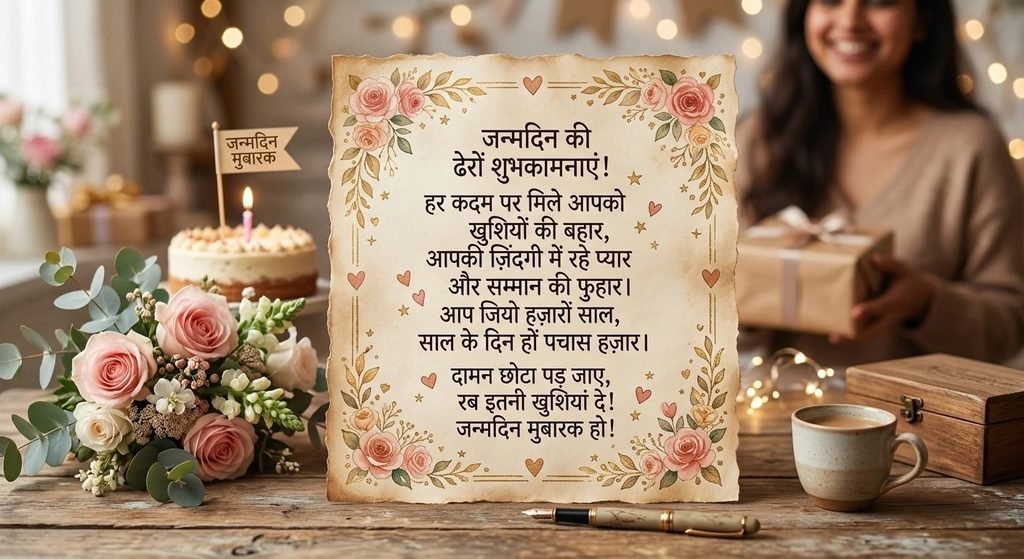 जन्मदिन
मुबारक
जन्मदिन की
ढेरों शुभकामनाएं!
हर कदम पर मिले आपको
खुशियों की बहार,
आपकी ज़िंदगी में रहे प्यार
और सम्मान की फुहार।
आप जियो हज़ारों साल,
साल के दिन हों पचास हज़ार।
दामन छोटा पड़ जाए,
रब इतनी खुशियां दे!
जन्मदिन मुबारक हो!